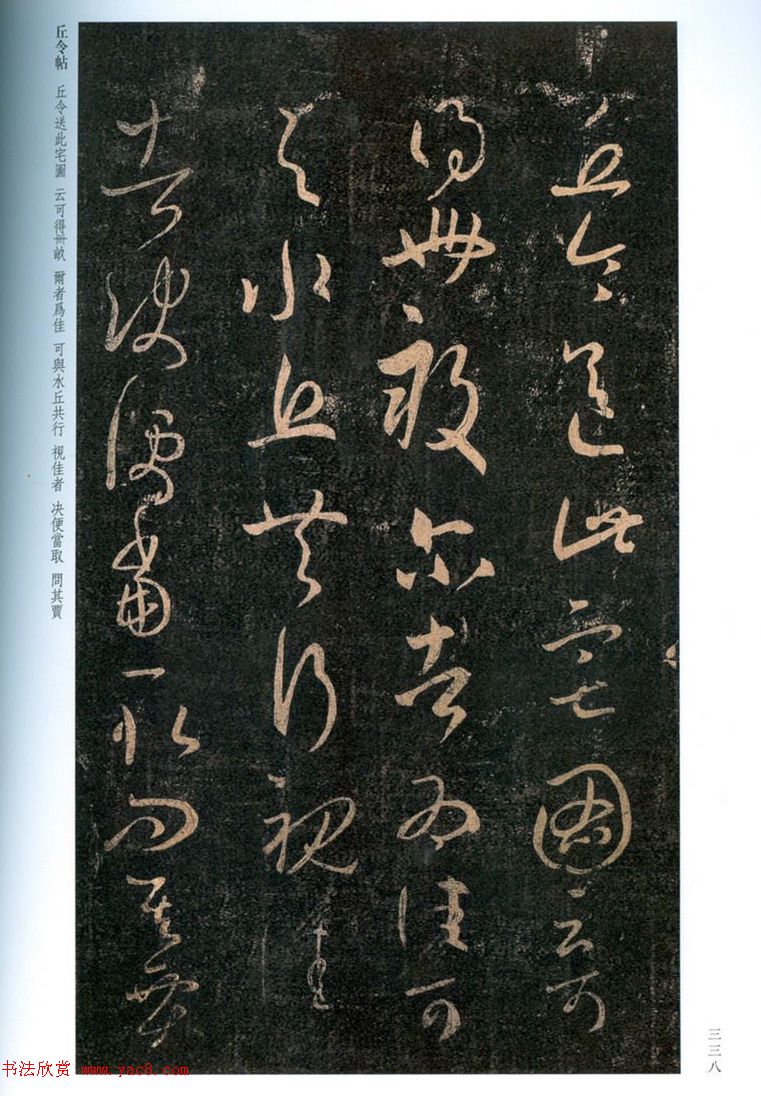 丘令送此宅圖云可
得卌畝爾者為佳可
與水丘共行視佳
者決便當取問其賈
丘令帖 丘令送此宅圖 云可得卌畝 爾者爲佳 可與水丘共行 視佳者 决便當取 問其賈
三三八
书法欣赏 www.yac8.com